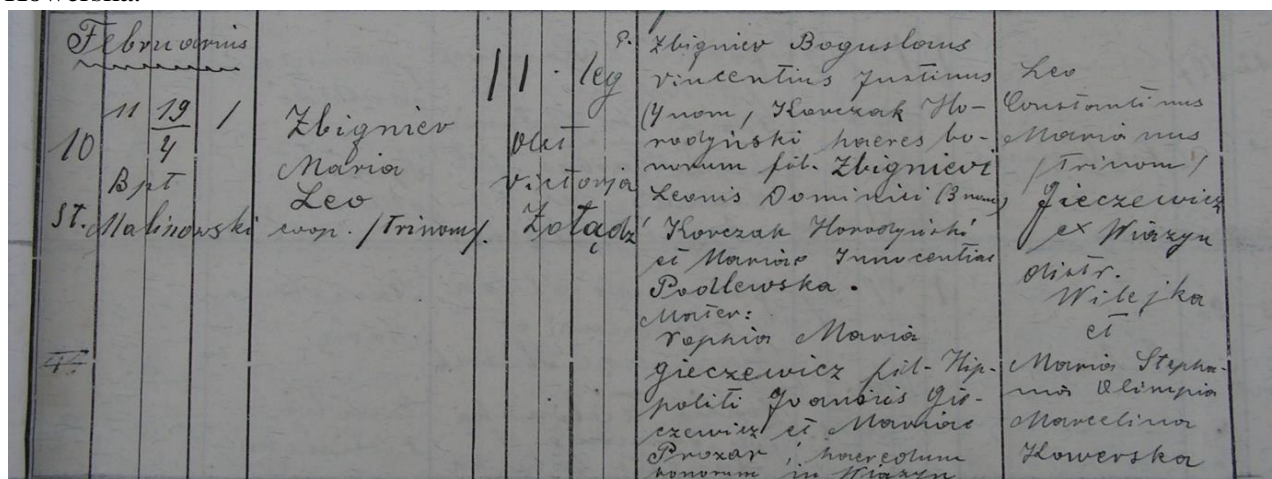 Februarius
11 19/4 /
10
Bpt
St. Malinowski
coop.
Zbigniev
Maria
Leo
/Trinom/.
1 1. leg
obst
Victoria
Żołądź
P. Zbigniev Boguslaus
Vincentius Justinus
(4 nom, Korczak Ho-
rodyński haeres bo-
norum fil. Zbignievi
Leonis Dominici (3 nom)
Korczak Horodyński
et Mariae Innocentiae
Podlewska.
Mater:
Sophia Maria
Gieczewicz fil. Hip-
politi Joannis Gie-
czewicz et Mariae
Prozor, haeredum
bonorum in Wiazyn
Leo
Constantinus
Marianus
/Trinom/
Gieczewicz
ex Wiazyn
distr.
Wilejka
et
Maria Stepha-
nia Olimpia
Marcelina
Kowerska